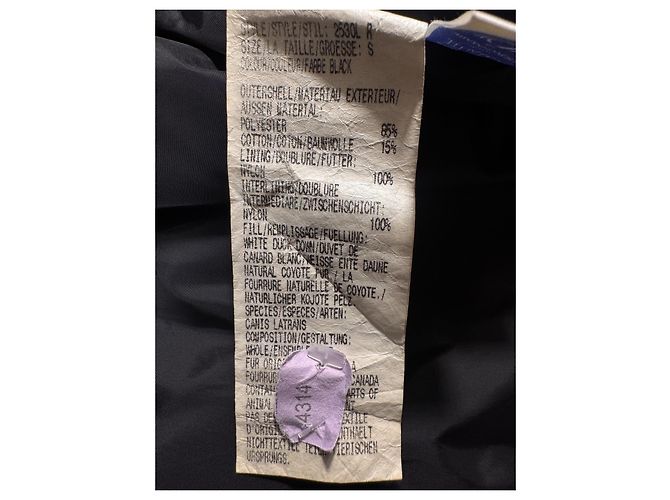 STYLE/STYLE/STIL: 2530L R
SIZE/LA TAILLE/GROESSE: S
COLOUR/COULEUR/FARBE BLACK
OUTERSHELL/MATERIAU EXTERIEUR/
AUSSEN MATERIAL:
POLYESTER 85%
COTTON/COTON/BAUMWOLLE 15%
LINING/DOUBLURE/FUTTER:
NYLON 100%
INTERLINING/DOUBLURE
INTERMEDIARE/ZWISCHENSCHICHT:
NYLON 100%
FILL/REMPLISSAGE/FUELLUNG:
WHITE DUCK DOWN/DUVET DE
CANARD BLANC/WEISSE ENTE DAUNE
NATURAL COYOTE FUR / LA
FOURRURE NATURELLE DE COYOTE./
NATURLICHER KOJOTE PELZ.
SPECIES/ESPECES/ARTEN:
CANIS LATRANS
COMPOSITION/GESTALTUNG:
WHOLE/
FUR
CANADA
ARTS OF
ANIMAL
PAS DES
ENTHAELT
NICHTTEXTILE TEILE TIERISCHEN
URSPRUNGS.
4314